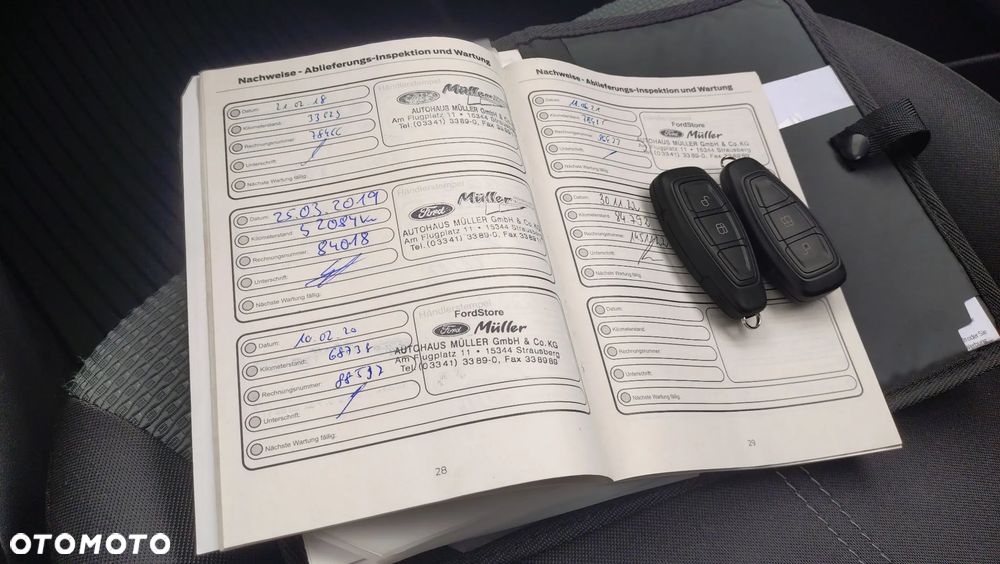 Nachweise - Ablieferungs-Inspektion und Wartung
Datum: 21.02.18
Kilometerstand: 33629
Rechnungsnummer: 78466
Unterschrift:
Nächste Wartung fällig:
Händlerstempel
Ford Müller
AUTOHAUS MÜLLER GmbH & Co. KG
Am Flugplatz 11 • 15344 Strausberg
Tel. (03341) 3389-0, Fax 338989
Datum: 25.03.2019
Kilometerstand: 52084km
Rechnungsnummer: 84018
Unterschrift:
Nächste Wartung fällig:
Händlerstempel
Ford Müller
AUTOHAUS MÜLLER GmbH & Co. KG
Am Flugplatz 11 • 15344 Strausberg
Tel. (03341) 3389-0, Fax 3389
Datum: 10.02.20
Kilometerstand: 68737
Rechnungsnummer: 88597
Unterschrift:
Nächste Wartung fällig:
Händlerstempel
FordStore
Ford Müller
AUTOHAUS MÜLLER GmbH & Co. KG
Am Flugplatz 11 • 15344 Strausberg
Tel. (03341) 3389-0, Fax 338989
28
Nachweise - Ablieferungs-Inspektion und Wartung
Datum: 11.06.21
Kilometerstand:
Rechnungsnummer:
Unterschrift:
Nächste Wartung fällig:
Händlerstempel
FordStore
Ford Müller
AUTOHAUS MÜLLER GmbH & Co. KG
Am Flugplatz 11 • 15344 Strausberg
Tel. (03341) 3389-0, Fax
Datum: 30.11.22
Kilometerstand: 84792
Rechnungsnummer:
Unterschrift:
Nächste Wartung fällig:
Datum:
Kilometerstand:
Rechnungsnummer:
Unterschrift:
Nächste Wartung fällig:
29
OTOMOTO